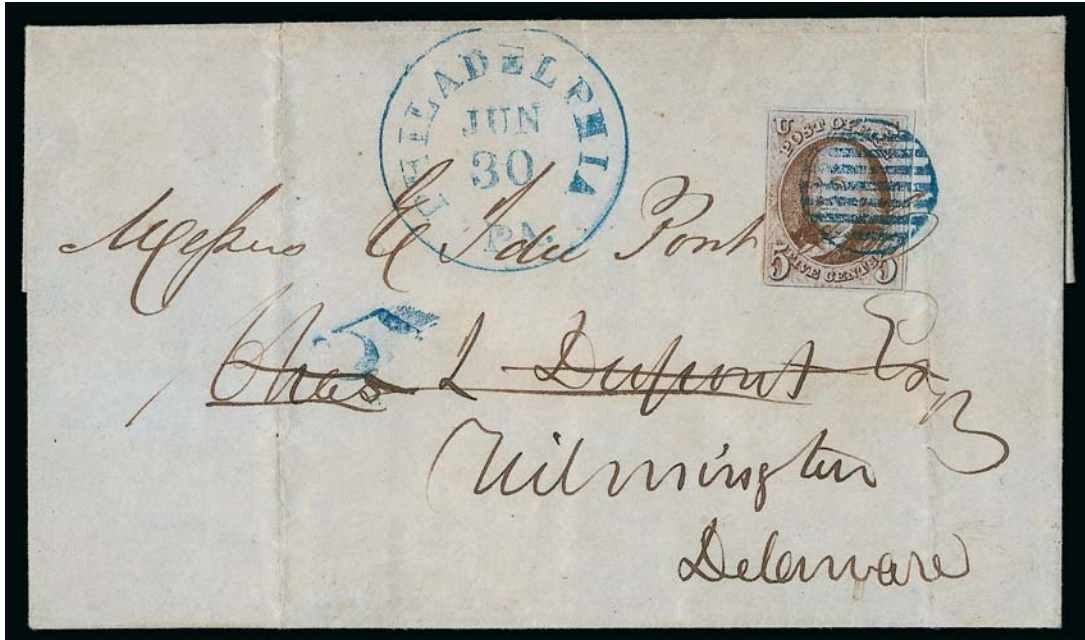 PHILADELPHIA
JUN
30
PA.
U
POST OFFICE
5 FIVE CENTS 5
du Pont
5
Chas L Dupont Esq
Wilmington
Delaware